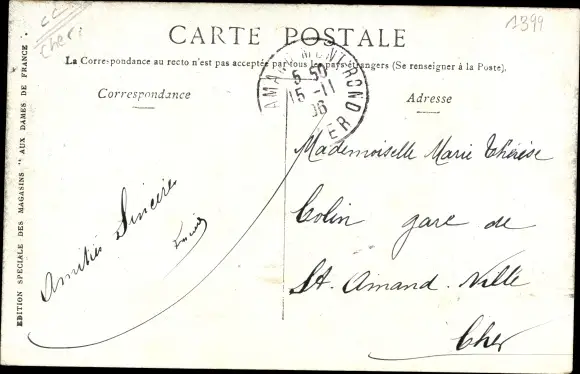 CC
Cher
1399
CARTE POSTALE
La Correspondance au recto n'est pas acceptée par tous les pays étrangers (Se renseigner à la Poste).
Correspondance
Adresse
AMAND MONTROND
5.50
15 -11
06
CHER
Mademoiselle Marie Thérèse
Colin gare de
St. Amand. Ville
Cher
Amitiés Sincère
EDITION SPÉCIALE DES MAGASINS "AUX DAMES DE FRANCE"